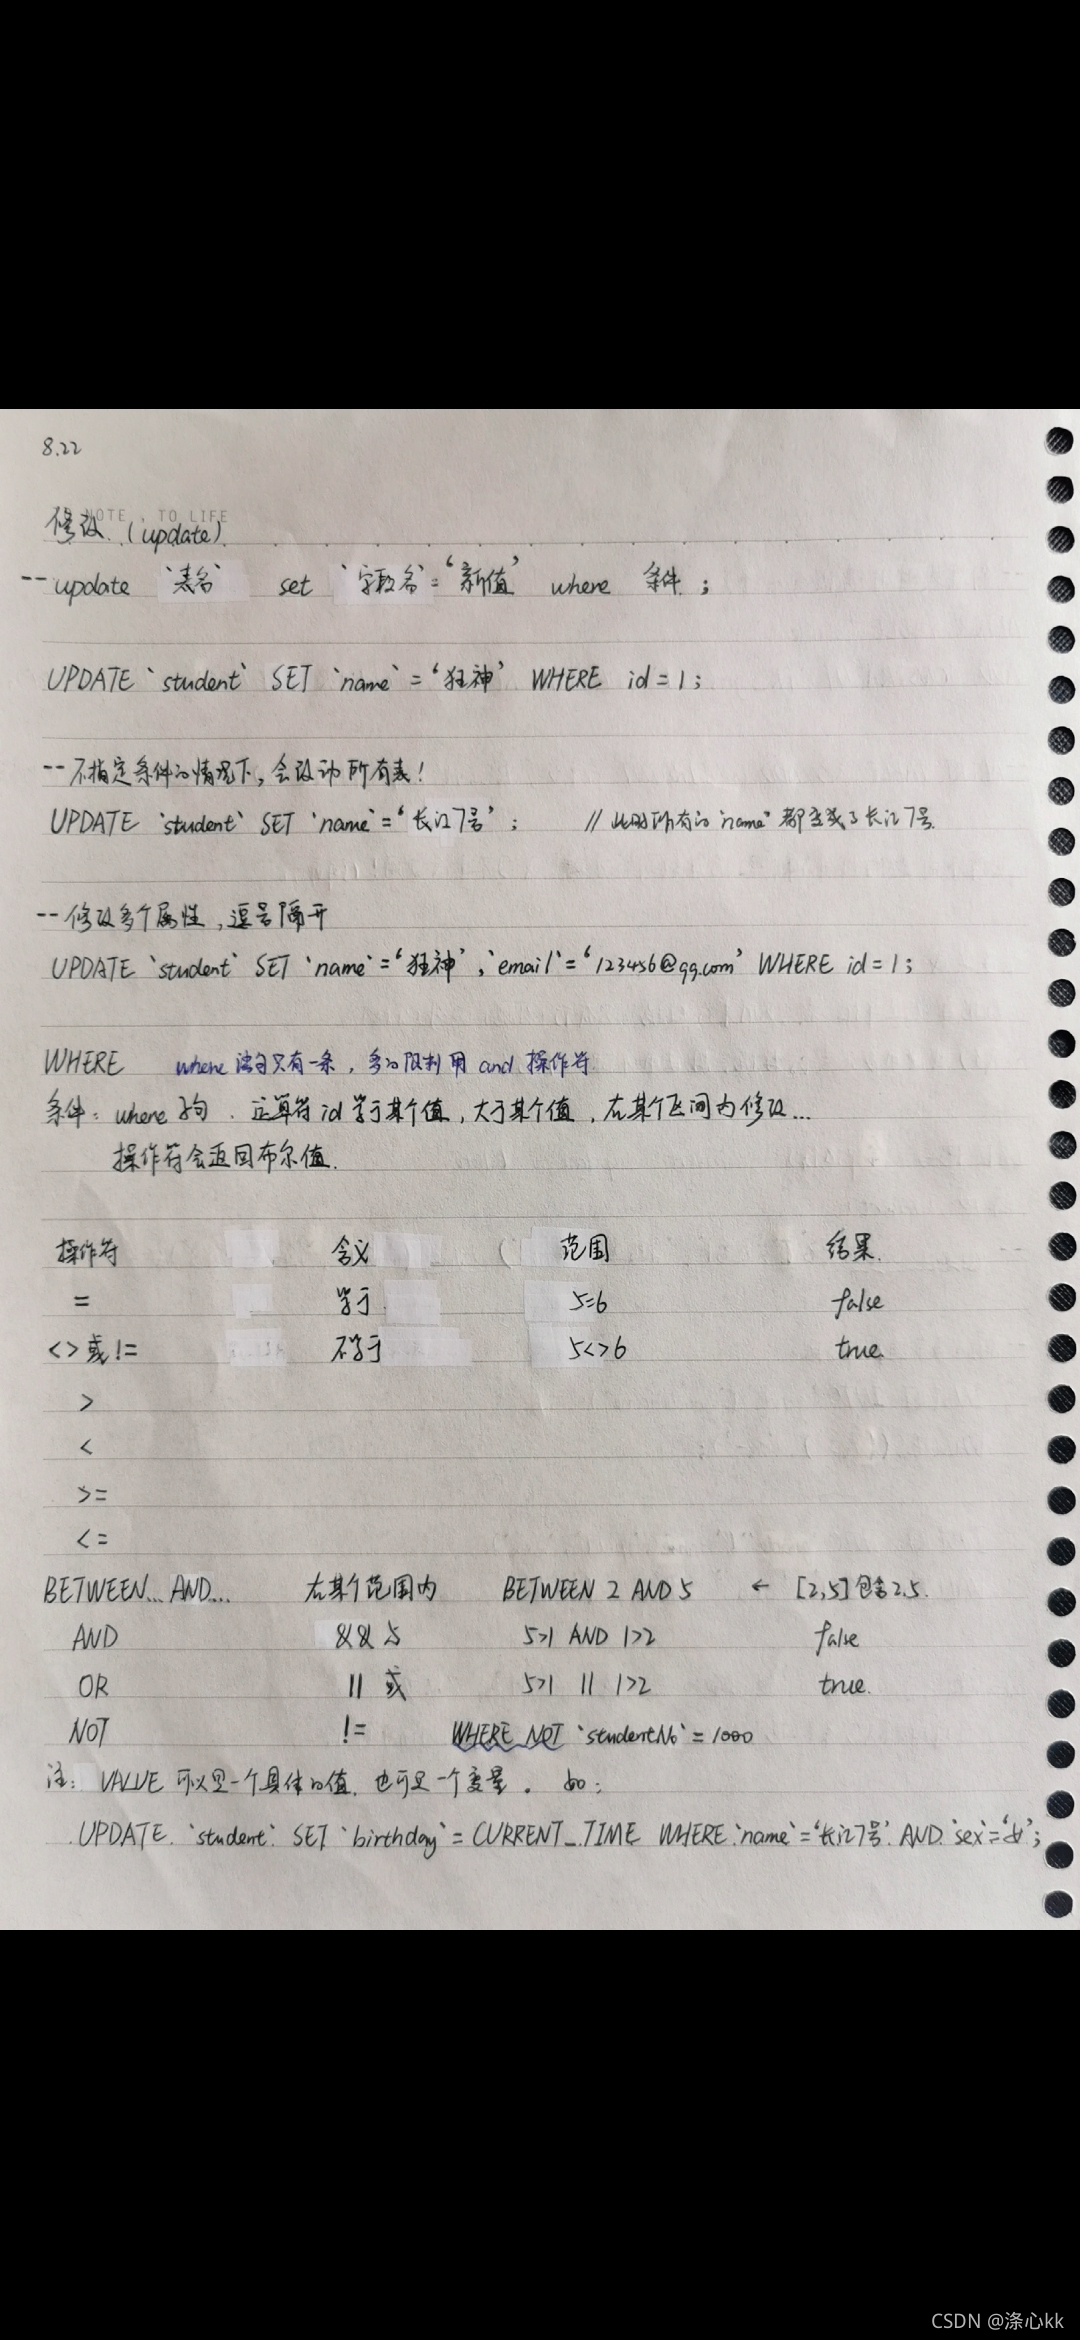 8.22
NOTE TO LIFE
修改 (update)
-- update `表名` set `字段名`='新值' where 条件;
UPDATE `student` SET `name`='狂神' WHERE id=1;
--不指定条件的情况下,会改动所有表!
UPDATE `student` SET `name`='长江7号'; // 此时所有的`name`都变成了长江7号.
--修改多个属性,逗号隔开
UPDATE `student` SET `name`='狂神',`email`='123456@qq.com' WHERE id=1;
WHERE where 语句只有一条,多的限制用 and 操作符
条件: where 子句. 运算符 id 等于某个值,大于某个值,在某个区间内修改...
操作符会返回布尔值.
操作符 含义 范围 结果
= 等于 5=6 false
<>或!= 不等于 5<>6 true
>
<
>=
<=
BETWEEN...AND... 在某个范围内 BETWEEN 2 AND 5 ← [2,5]包含2,5.
AND && 与 5>1 AND 1>2 false
OR || 或 5>1 || 1>2 true.
NOT != WHERE NOT `studentNo`=1000
注: VALUE 可以是一个具体的值,也可是一个变量. 如:
UPDATE `student` SET `birthday`=CURRENT_TIME WHERE `name`='长江7号' AND `sex`='女';
CSDN @涤心kk